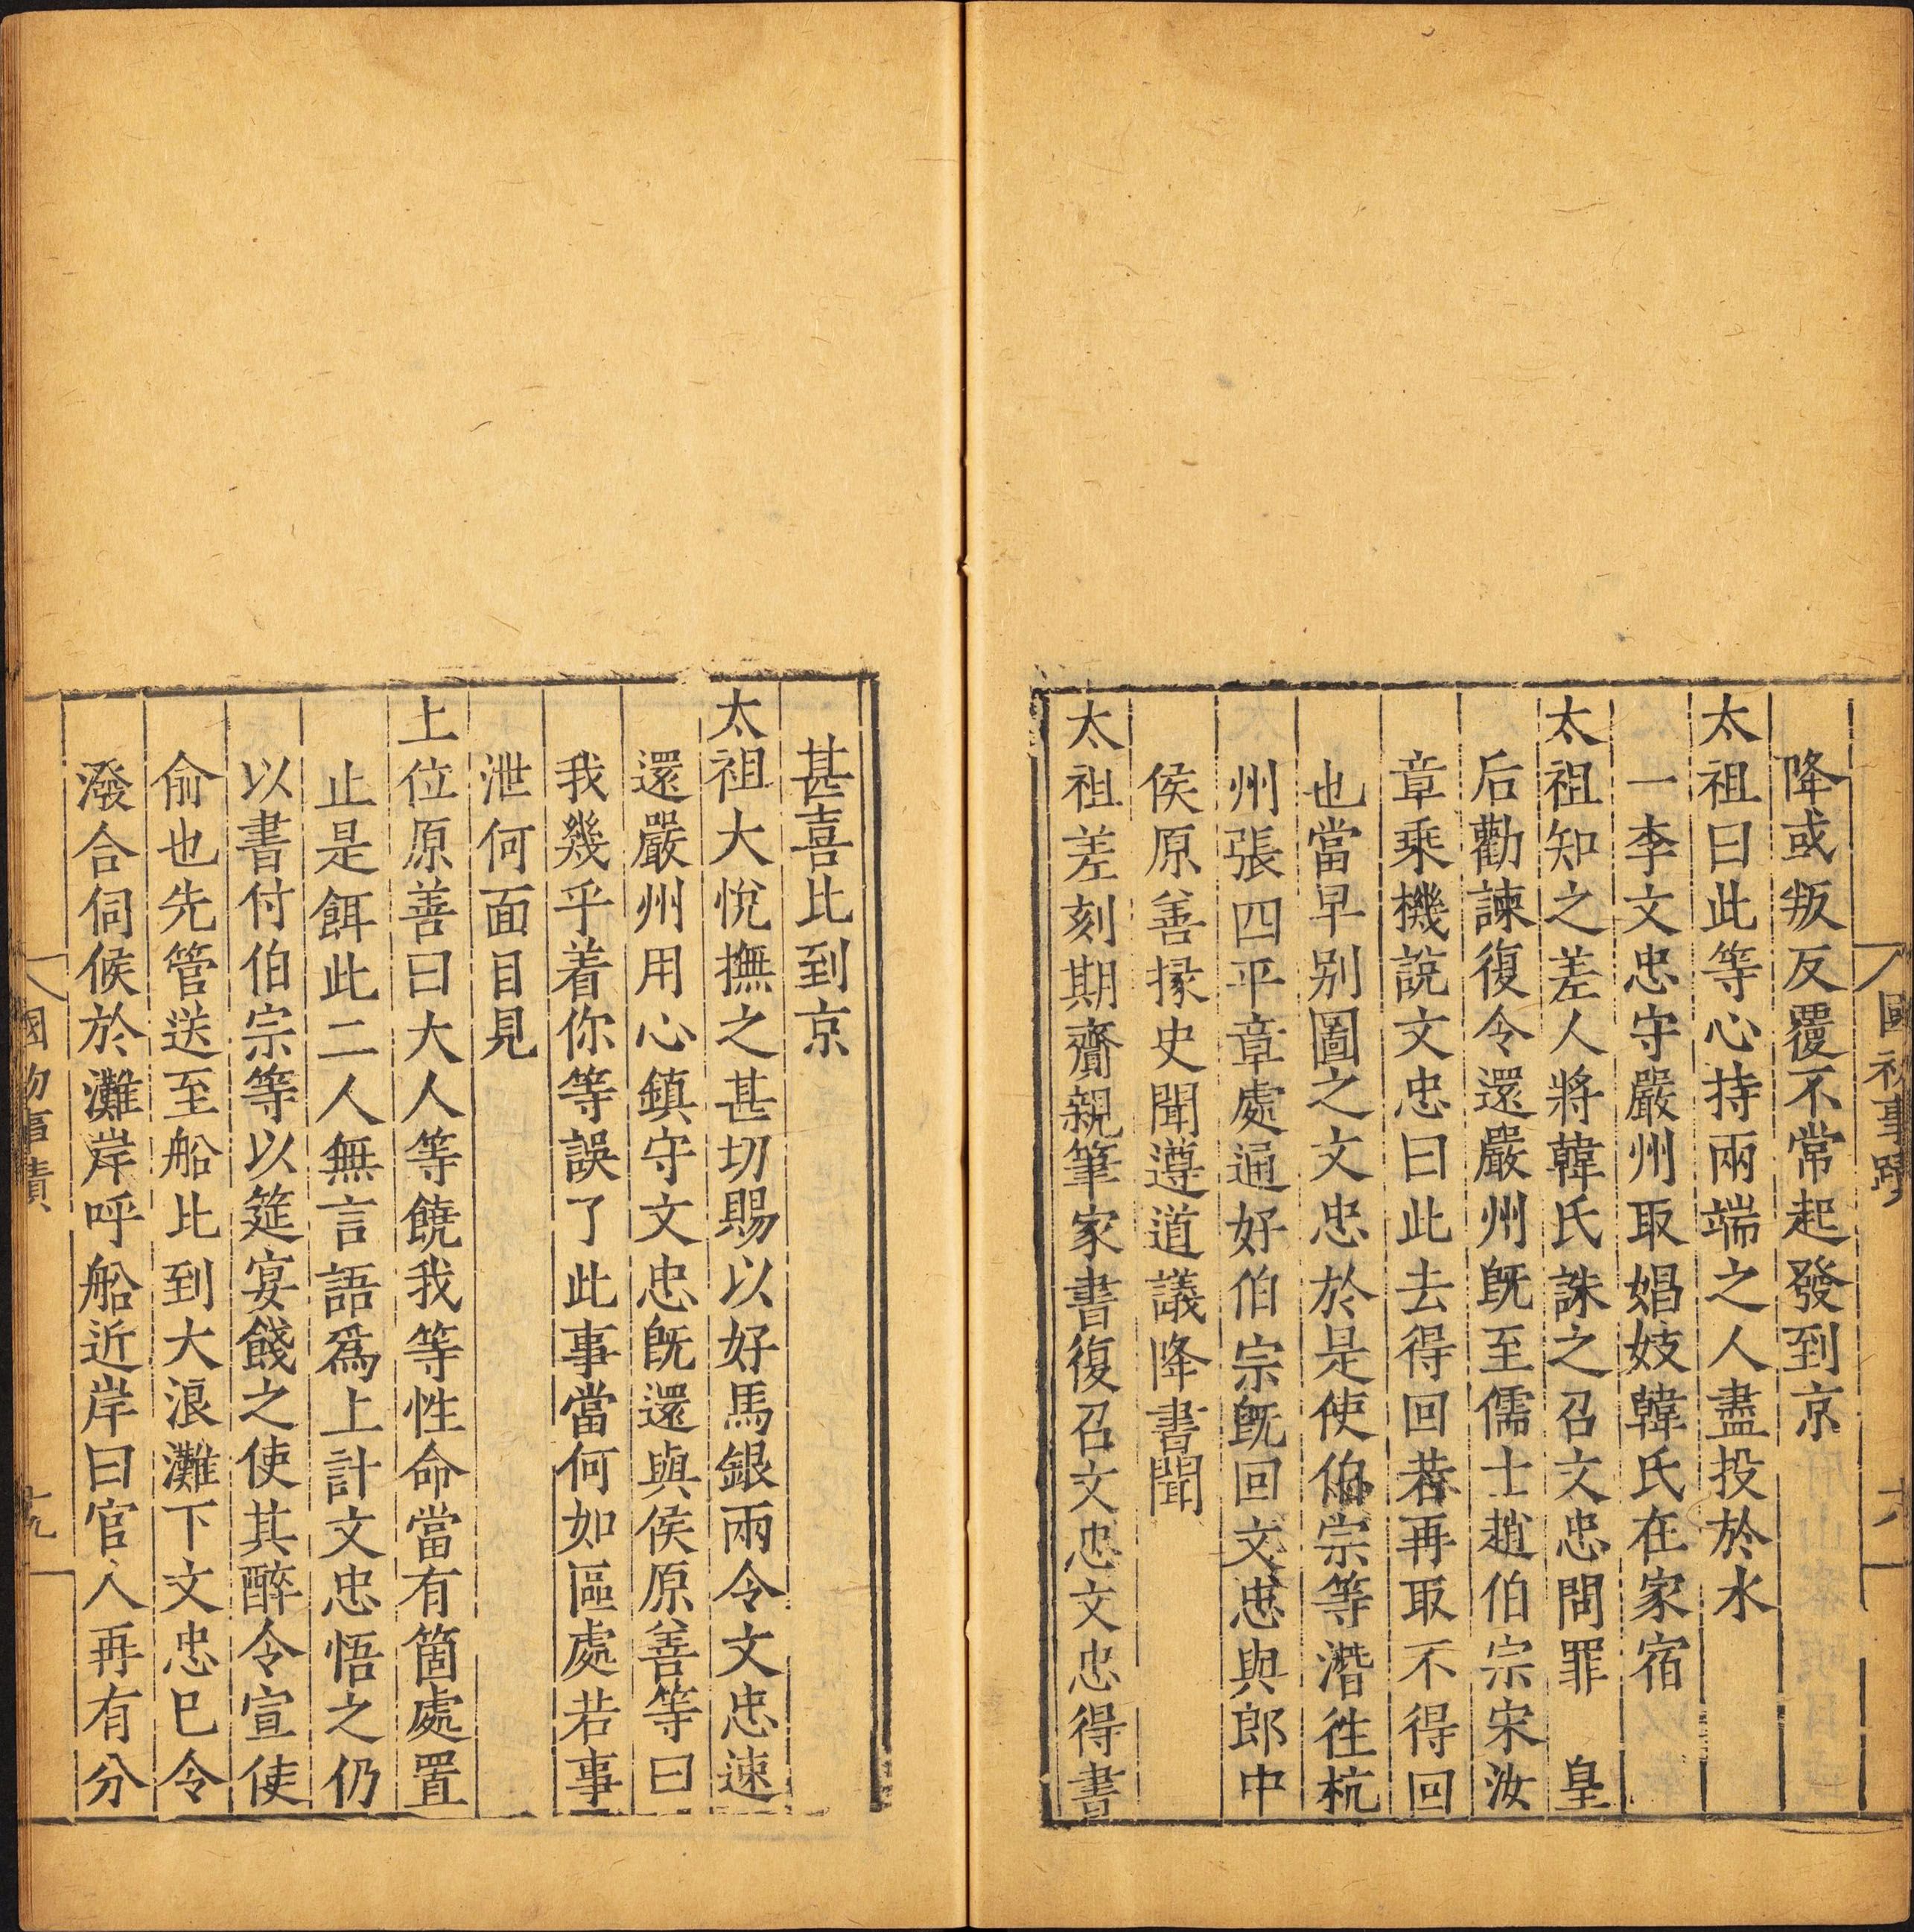 國初事蹟
降或叛反覆不常起發到京
太祖曰此等心持兩端之人盡投於水
一李文忠守嚴州取娼妓韓氏在家宿
太祖知之差人將韓氏誅之召文忠問罪　皇
后勸諫復令還嚴州旣至儒士趙伯宗宋汝
章乗機說文忠曰此去得回若再取不得回
也當早别圖之文忠於是使伯宗等潛徃杭
州張四平章處通好伯宗旣回文忠與郎中
侯原善掾史聞遵道議降書聞
太祖差刻期齎親筆家書復召文忠文忠得書
甚喜比到京
太祖大悅撫之甚切賜以好馬銀兩令文忠速
還嚴州用心鎮守文忠旣還與侯原善等曰
我幾乎着你等誤了此事當何如區處若事
泄何面目見
上位原善曰大人等饒我等性命當有箇處置
止是餌此二人無言語爲上計文忠悟之仍
以書付伯宗等以筵宴餞之使其醉令宣使
俞也先管送至船比到大浪灘下文忠已令
潑合伺候於灘岸呼船近岸曰官人再有分
國初事蹟
十九